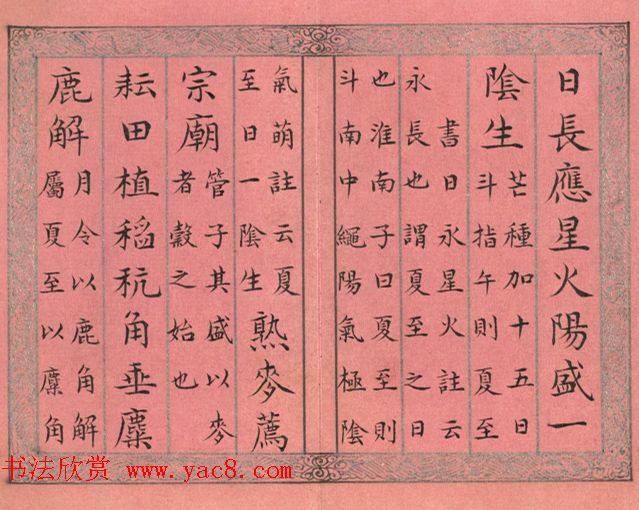 日長應星火陽盛一
陰生
芒種加十五日
斗指午則夏至
書日永星火註云
永長也謂夏至之日
也淮南子曰夏至則
斗南中繩陽氣極陰
氣萌註云夏
至日一陰生
熟麥薦
宗廟
管子其盛以麥
者穀之始也
耘田植稻秔角垂麋
鹿解
月令以鹿角解
屬夏至以麋角
书法欣赏 www.yac8.com